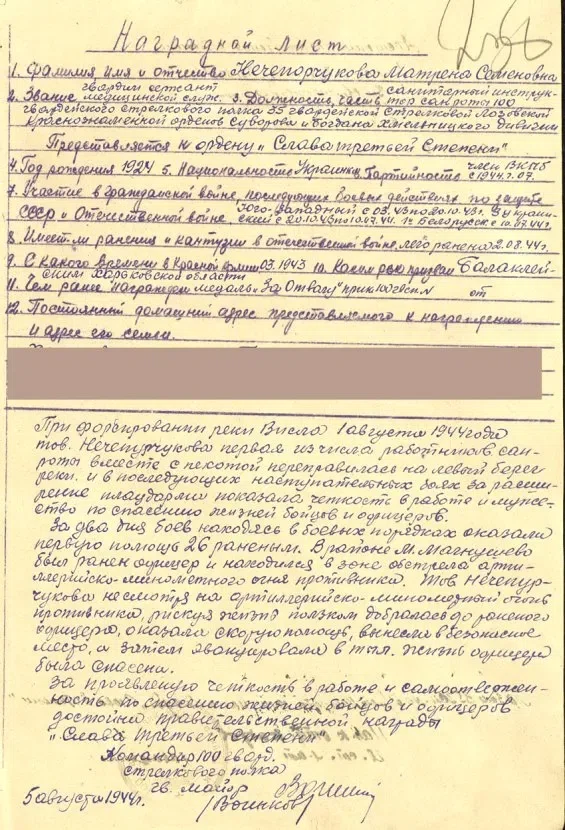 Наградной лист
1. Фамилия, имя и отчество Нечепорчукова Матрена Семеновна
гвардии сержант санитарный инструк-
2. Звание медицинской служ. 3. Должность, часть тор санроты 100
гвардейского стрелкового полка 35 гвардейской Стрелковой Лозовской
Краснознаменной орденов Суворова и Богдана Хмельницкого дивизии
Представляется к ордену „Слава третьей Степени"
4. Год рождения 1924 5. Национальность Украинка, Партийность член ВКПб
с 1944г. 07.
7. Участие в гражданской войне, последующих боевых действиях по защите
СССР и Отечественной войне Юго-Западный с 03.43 по 20.10.43г. 3й украин-
ский с 20.10.43 по 10.07.44. 1й Белорусск. с 10.07.44г.
8. Имеет ли ранения и кантузии в отечественной войне легко ранена 2.08.44г.
9. С какого времени в Красной армии 03.1943 10. Каким рвк призван Балаклей-
ским Харьковской области
11. Чем ранее награжден медаль „За Отвагу" прик. 100 гвсп № от
12. Постоянный домашний адрес представляемого к награждению
и адрес его семьи.
При форсировании реки Висла 1 августа 1944 года
тов. Нечепурчукова первая из числа работников сан-
роты вместе с пехотой переправилась на левый берег
реки. и в последующих наступательных боях за расши-
рение плацдарма показала четкость в работе и муже-
ство по спасению жизней бойцов и офицеров.
За два дня боев находясь в боевых порядках оказала
первую помощь 26 раненым. В районе М. Магнушево
был ранен офицер и находился в зоне обстрела арти-
ллерийско-минометного огня противника. Тов Нечепур-
чукова несмотря на артиллерийско-минометный огонь
противника, рискуя жизнью ползком добралась до раненого
офицера, оказала скорую помощь, вынесла в безопасное
место, а затем эвакуировала в тыл. Жизнь офицера
была спасена.
За проявленую четкость в работе и самоотвержен-
ность по спасению жизней бойцов и офицеров
достойна правительственной награды
„Слава третьей степени"
Командир 100 гвард.
стрелкового полка
гв. майор
/Воинков/
5 августа 1944г.